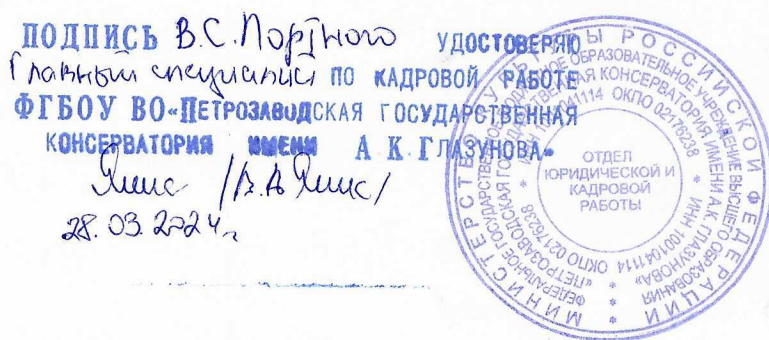 ПОДПИСЬ В.С. Портного УДОСТОВЕРЯЮ
Главный специалист ПО КАДРОВОЙ РАБОТЕ
ФГБОУ ВО «ПЕТРОЗАВОДСКАЯ ГОСУДАРСТВЕННАЯ
КОНСЕРВАТОРИЯ ИМЕНИ А. К. ГЛАЗУНОВА»
28.03.2024г.
МИНИСТЕРСТВО КУЛЬТУРЫ РОССИЙСКОЙ ФЕДЕРАЦИИ
ФЕДЕРАЛЬНОЕ ГОСУДАРСТВЕННОЕ ОБРАЗОВАТЕЛЬНОЕ УЧРЕЖДЕНИЕ ВЫСШЕГО ОБРАЗОВАНИЯ
«ПЕТРОЗАВОДСКАЯ ГОСУДАРСТВЕННАЯ КОНСЕРВАТОРИЯ ИМЕНИ А.К. ГЛАЗУНОВА»
ИНН 1001041114 ОКПО 02176238
ОТДЕЛ
ЮРИДИЧЕСКОЙ И
КАДРОВОЙ
РАБОТЫ